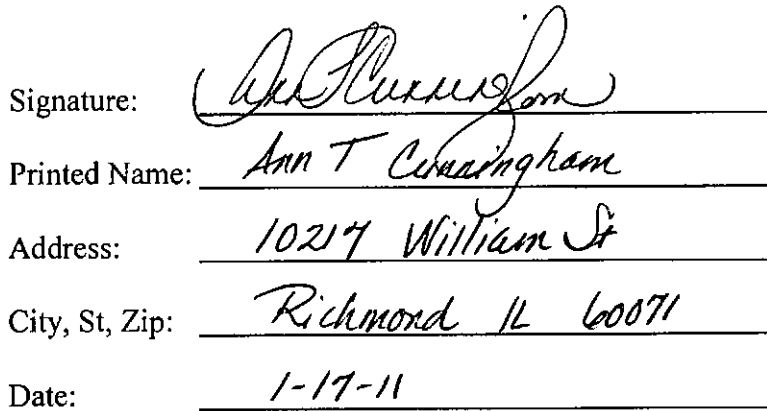 Signature: Ann T Cunningham
Printed Name: Ann T Cunningham
Address: 10217 William St
City, St, Zip: Richmond IL 60071
Date: 1-17-11